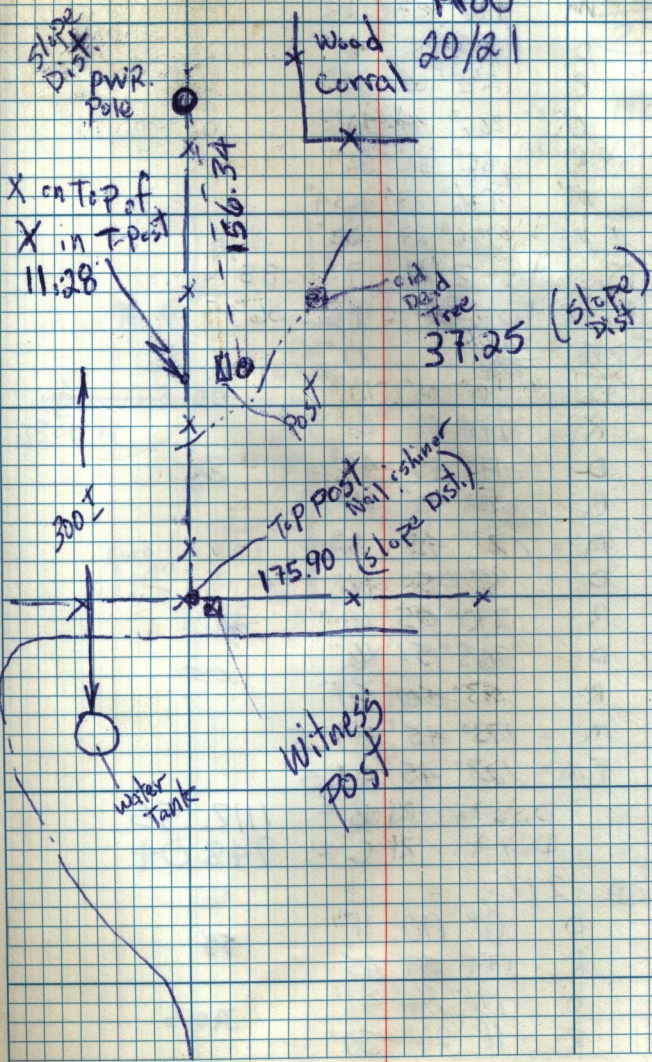 20/21
Slope
Dist.
PWR.
Pole
Wood
Corral
156.34
X on Top of
X in T-Post
11.28
old
Dead
Tree
37.25 (Slope
Dist)
Post
300±
Top post
Nail & shiner
175.90 (Slope Dist.)
Witness
Post
Water
Tank